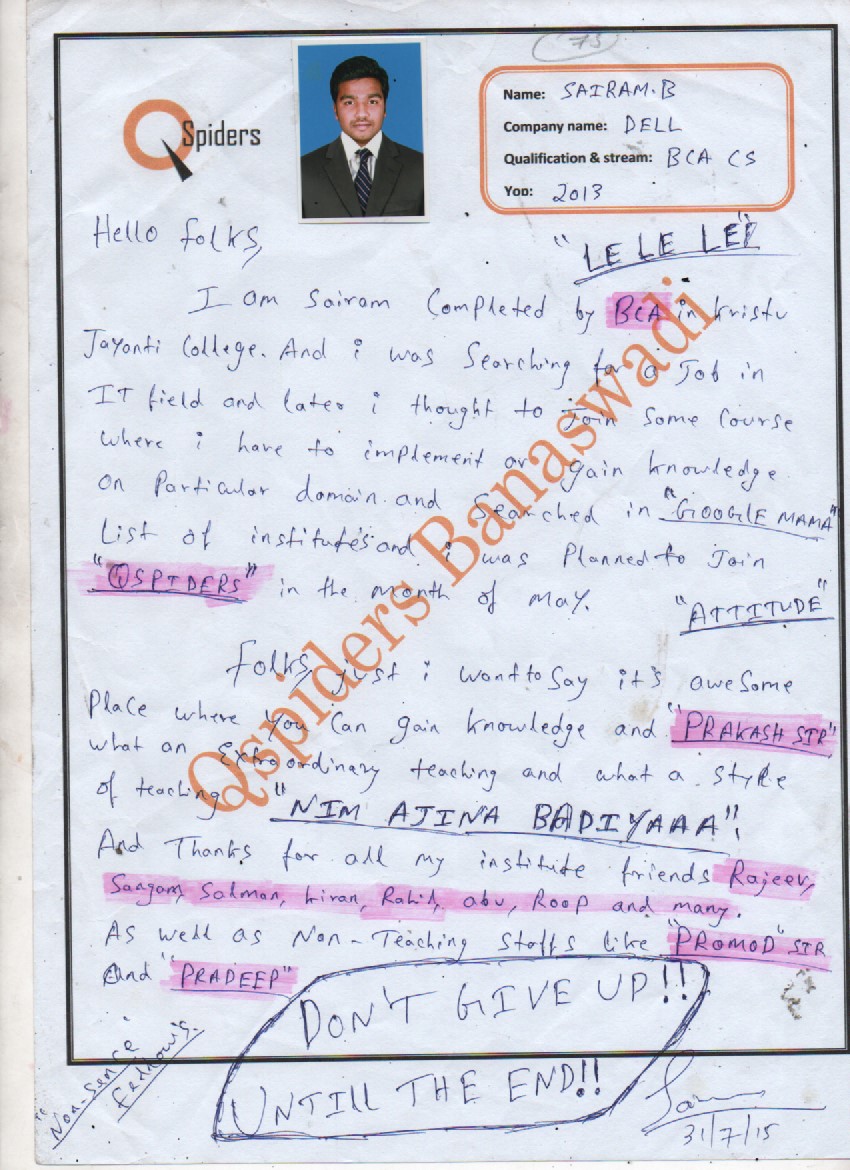 '75
QSpiders
Name: SAIRAM.B
Company name: DELL
Qualification & stream: BCA CS
Yop: 2013
Hello folks,
"LE LE LEE"
I am Sairam Completed by BCA in Kristu
Jayanti College. And i was Searching for a Job in
IT field and later i thought to Join Some Course
where i have to implement or gain knowledge
on Particular domain. and Searched in "GOOGLE MAMA"
List of institute's and i was Planned to Join
"QSPIDERS" in the month of May.
"ATTITUDE"
Folks, just i want to Say it's awesome
Place where you Can gain knowledge and "PRAKASH SIR"
what an Extraordinary teaching and what a style
of teaching "NIM AJINA BADIYAAA".
And Thanks for all my institute friends Rajeev,
Sangam, Salman, kiran, Rahil, abu, Roop and many.
As well as Non-Teaching Staffs like "PROMOD" SIR
And "PRADEEP"
DON'T GIVE UP!!
UNTILL THE END!!
"Non-Sence
31/7/15
Qspiders Banaswadi